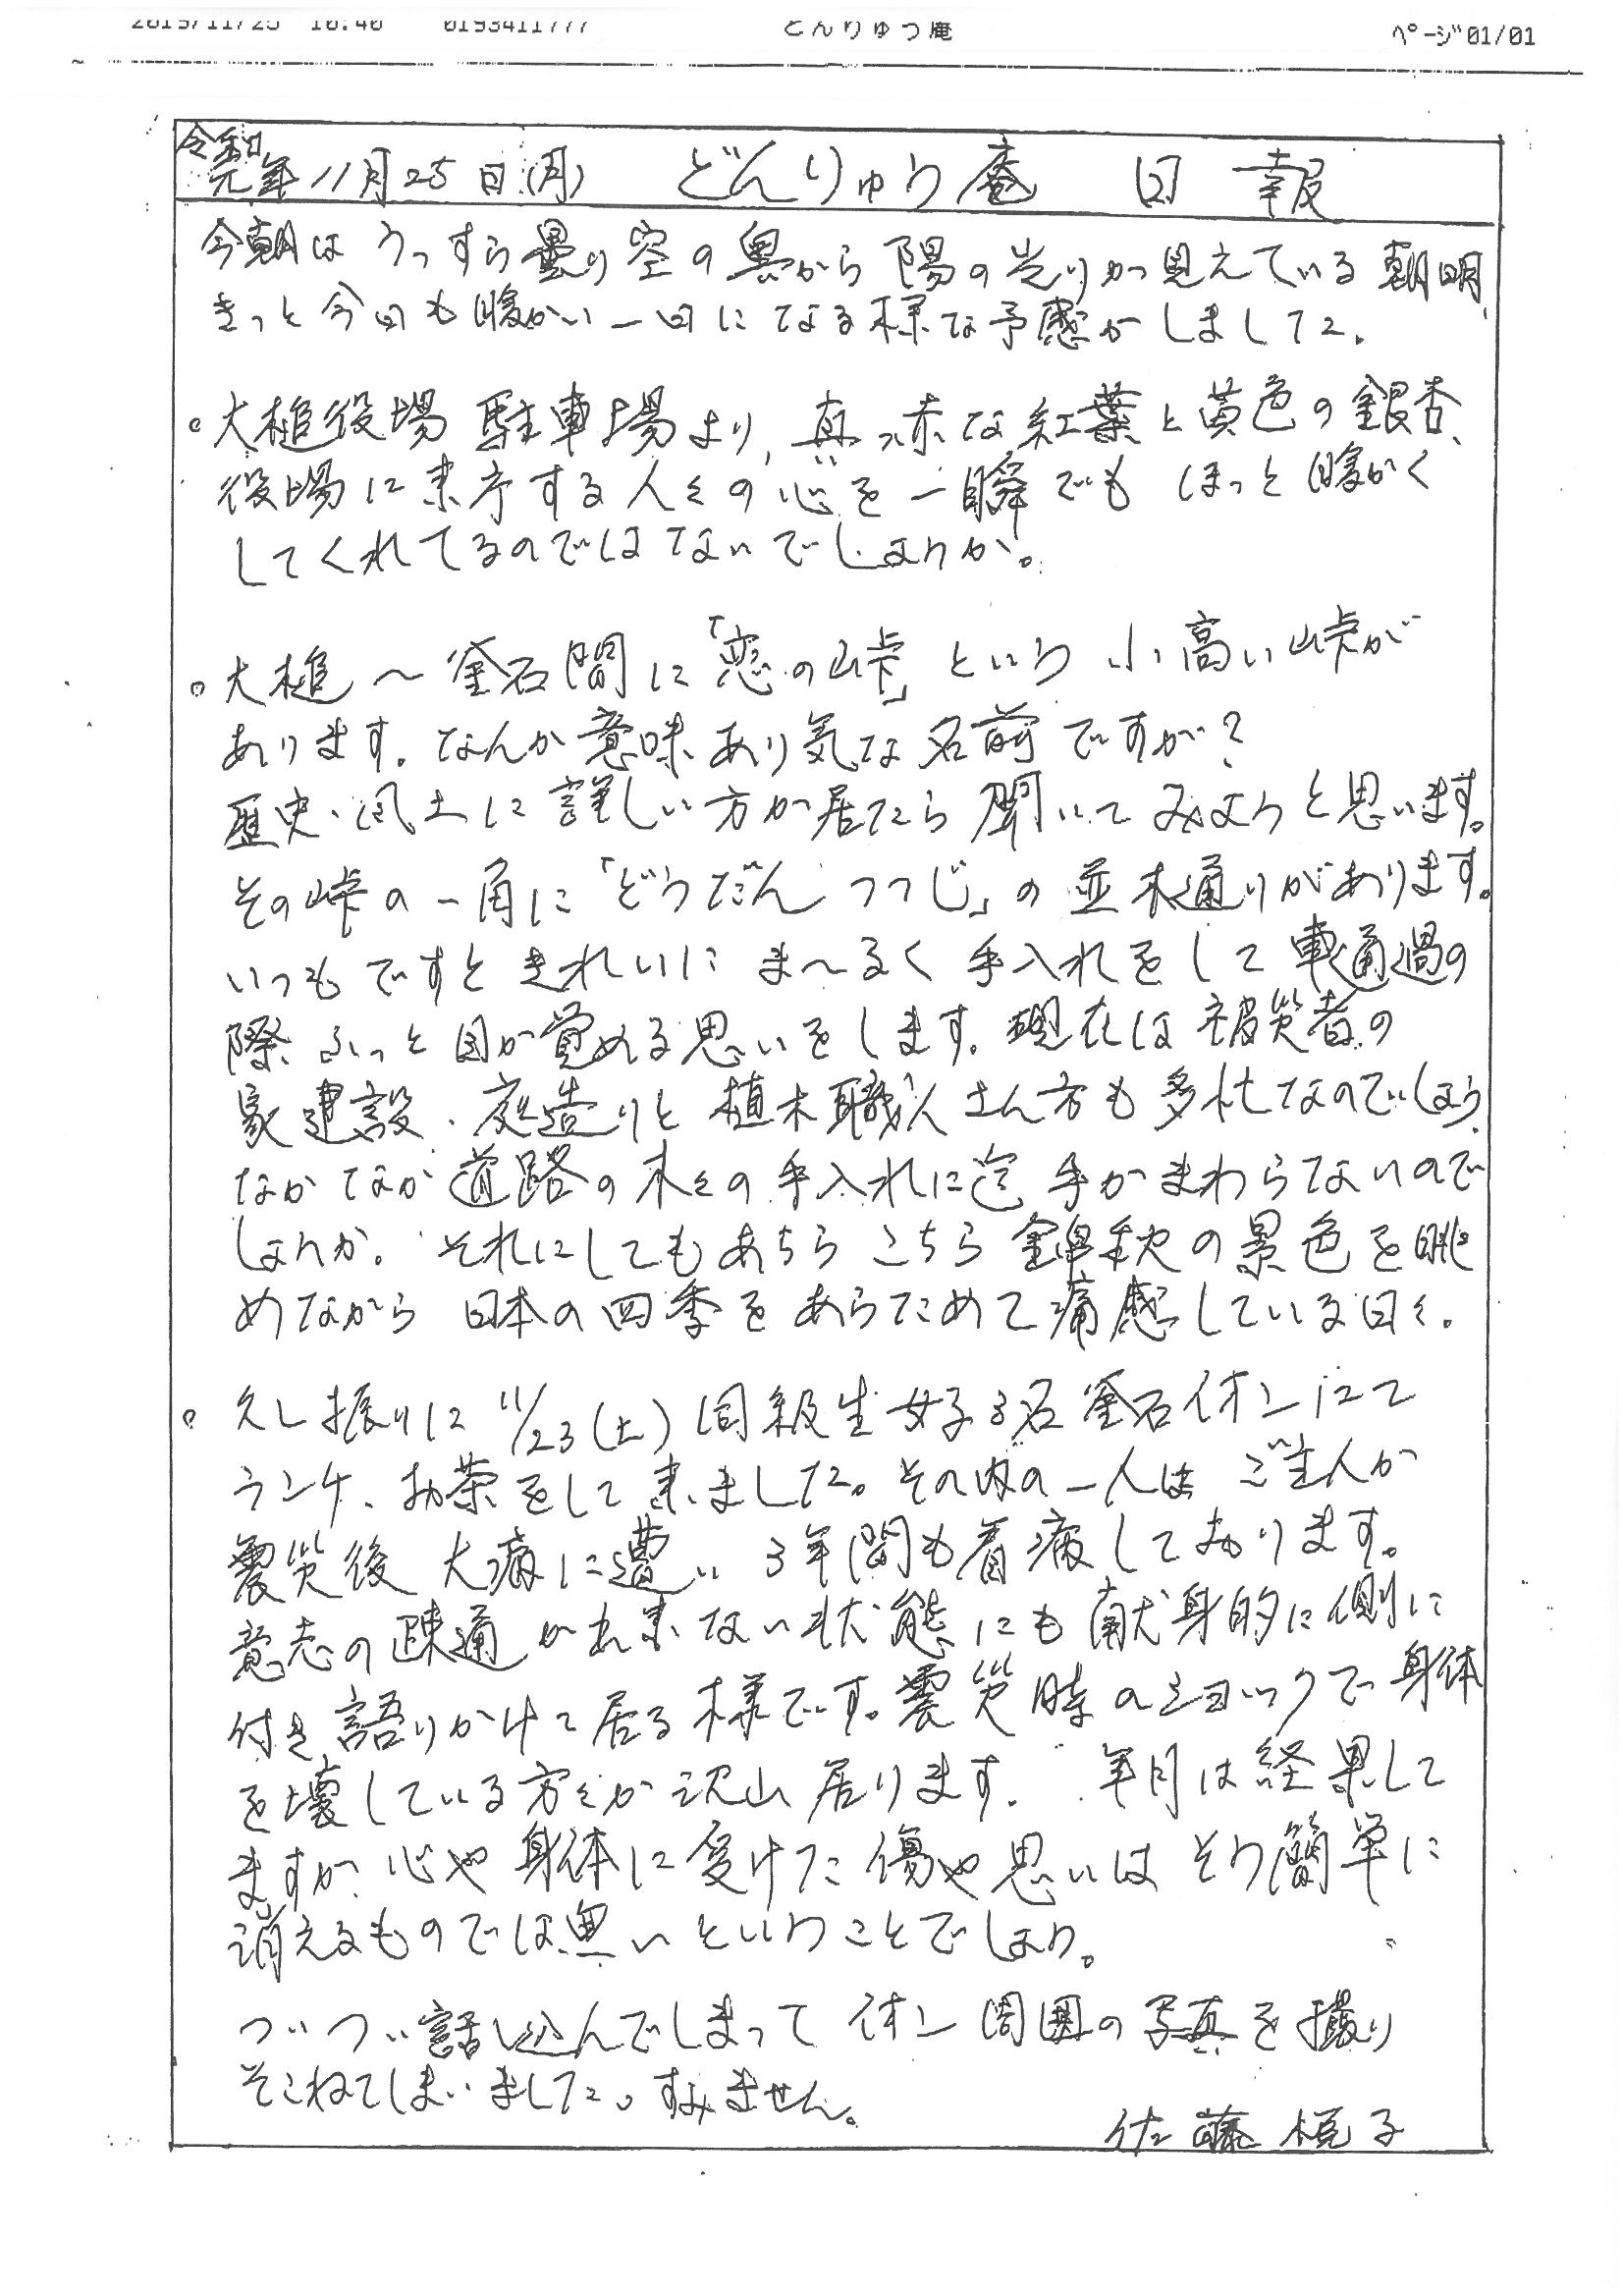 2019/11/25 16:40 0193411777 どんりゅう庵 ページ01/01
令和元年11月25日(月) どんりゅう庵 日報
今朝は うっすら曇り空の奥から 陽の光りが見えている朝明、
きっと今日も暖かい一日になる様な予感がしました。
。大槌役場 駐車場より、真っ赤な紅葉と黄色の銀杏、
役場に来庁する人々の心を一瞬でも ほっと暖かく
してくれてるのではないでしょうか。
。大槌〜釜石間に「恋の峠」という 小高い峠が
あります。なんか意味あり気な名前ですが?
歴史・風土に詳しい方が居たら聞いてみようと思います。
その峠の一角に「どうだんつつじ」の並木通りがあります。
いつもですときれいに ま〜るく 手入れをして車通過の
際 ふっと目が覚める思いをします。現在は被災者の
家建設、庭造りと植木職人さん方も多忙なのでしょう、
なかなか道路の木々の手入れに迄 手がまわらないので
しょうか。それにしてもあちらこちら錦秋の景色を眺
めながら 日本の四季をあらためて痛感している日々。
。久し振りに 11/23(土)同級生女子3名釜石イオンにて
ランチ、お茶をして来ました。その内の一人は ご主人が
震災後 大病に遭い 3年間も看病しております。
意志の疎通が出来ない状態にも献身的に側に
付き語りかけて居る様です。震災時のショックで身体
を壊している方々が沢山居ります。 年月は経果して
ますが、心や身体に受けた傷や思いはそう簡単に
消えるものでは無いということでしょう。
ついつい話し込んでしまって イオン周囲の写真を撮り
そこねてしまいました。すみません。
佐藤 悦子